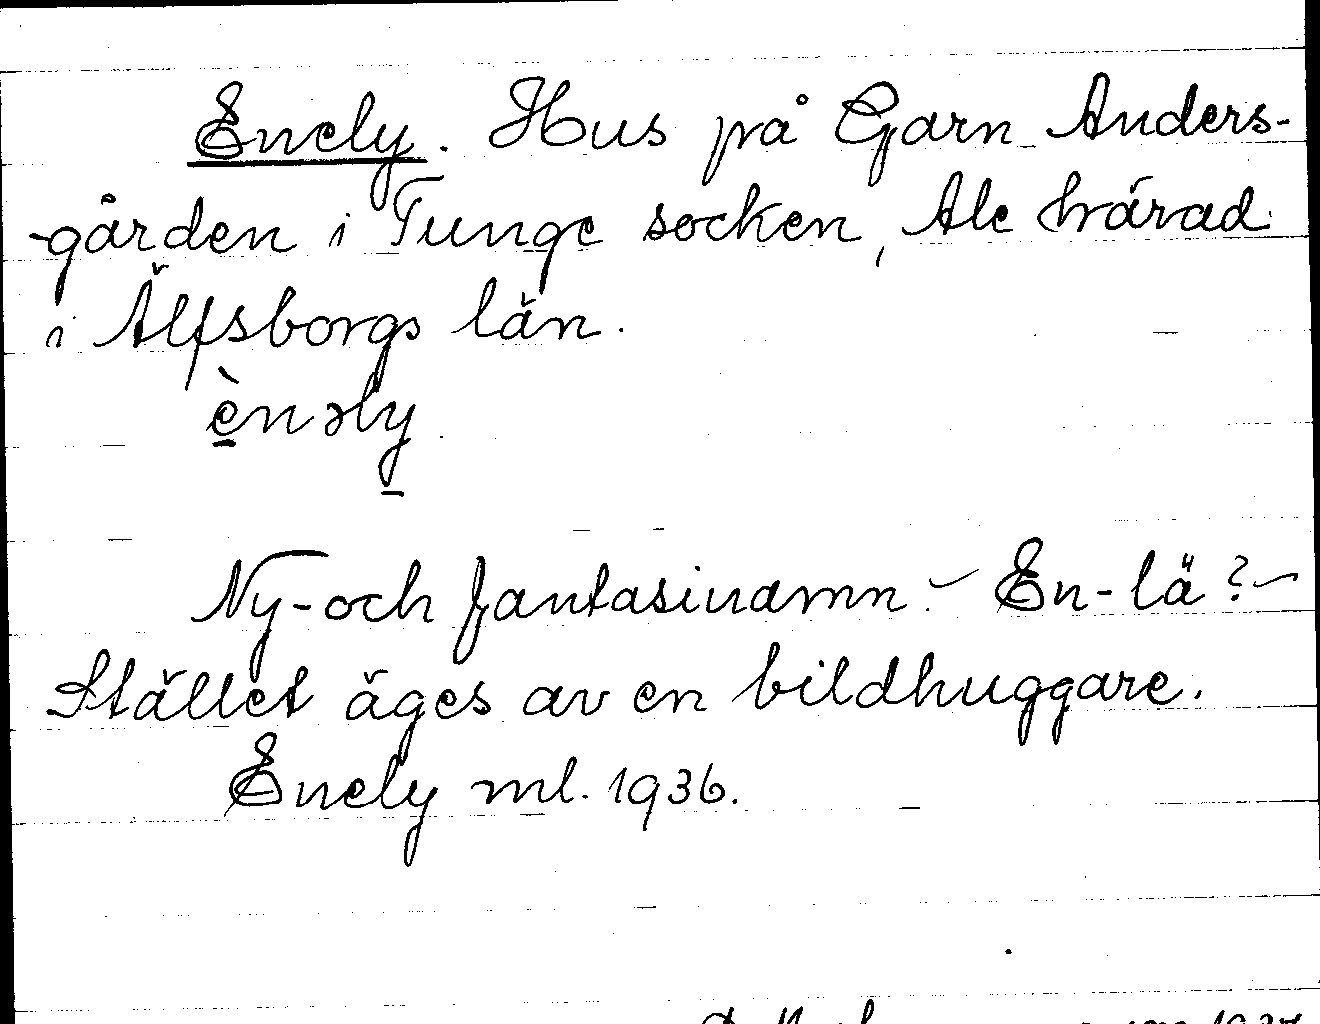 Enely. Hus på Garn Anders-
-gården i Tunge socken, Ale härad
i Älfsborgs län.
ènəly
Ny- och fantasinamn. – En-lä? –
Stället äges av en bildhuggare.
Enely ml. 1936.
1937